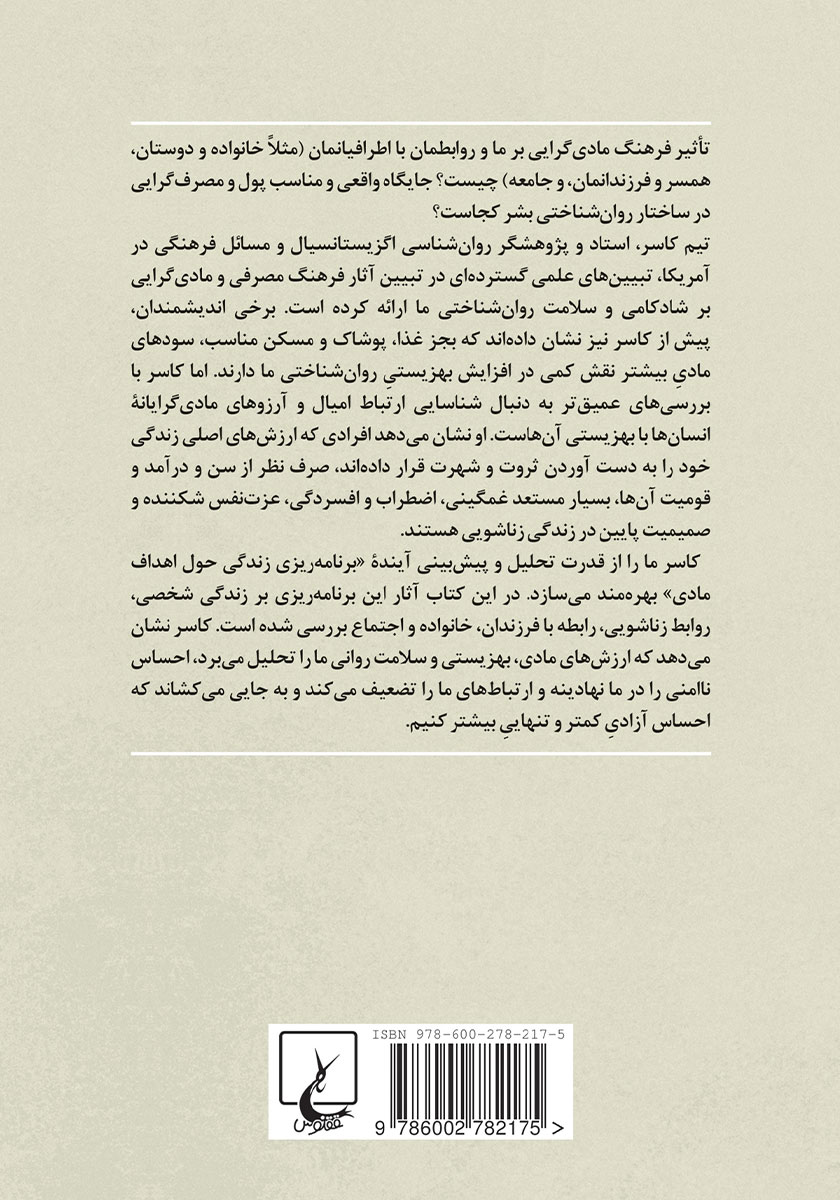 تأثیر فرهنگ مادی‌گرایی بر ما و روابطمان با اطرافیانمان (مثلاً خانواده و دوستان،
همسر و فرزندانمان، و جامعه) چیست؟ جایگاه واقعی و مناسب پول و مصرف‌گرایی
در ساختار روان‌شناختی بشر کجاست؟
تیم کاسر، استاد و پژوهشگر روان‌شناسی اگزیستانسیال و مسائل فرهنگی در
آمریکا، تبیین‌های علمی گسترده‌ای در تبیین آثار فرهنگ مصرفی و مادی‌گرایی
بر شادکامی و سلامت روان‌شناختی ما ارائه کرده است. برخی اندیشمندان،
پیش از کاسر نیز نشان داده‌اند که بجز غذا، پوشاک و مسکن مناسب، سودهای
مادیِ بیشتر نقش کمی در افزایش بهزیستیِ روان‌شناختی ما دارند. اما کاسر با
بررسی‌های عمیق‌تر به دنبال شناسایی ارتباط امیال و آرزوهای مادی‌گرایانهٔ
انسان‌ها با بهزیستی آن‌هاست. او نشان می‌دهد افرادی که ارزش‌های اصلی زندگی
خود را به دست آوردن ثروت و شهرت قرار داده‌اند، صرف نظر از سن و درآمد و
قومیت آن‌ها، بسیار مستعد غمگینی، اضطراب و افسردگی، عزت‌نفس شکننده و
صمیمیت پایین در زندگی زناشویی هستند.
کاسر ما را از قدرت تحلیل و پیش‌بینی آیندهٔ «برنامه‌ریزی زندگی حول اهداف
مادی» بهره‌مند می‌سازد. در این کتاب آثار این برنامه‌ریزی بر زندگی شخصی،
روابط زناشویی، رابطه با فرزندان، خانواده و اجتماع بررسی شده است. کاسر نشان
می‌دهد که ارزش‌های مادی، بهزیستی و سلامت روانی ما را تحلیل می‌برد، احساس
ناامنی را در ما نهادینه و ارتباط‌های ما را تضعیف می‌کند و به جایی می‌کشاند که
احساس آزادیِ کمتر و تنهاییِ بیشتر کنیم.
ISBN 978-600-278-217-5
9 786002 782175 >
ققنوس